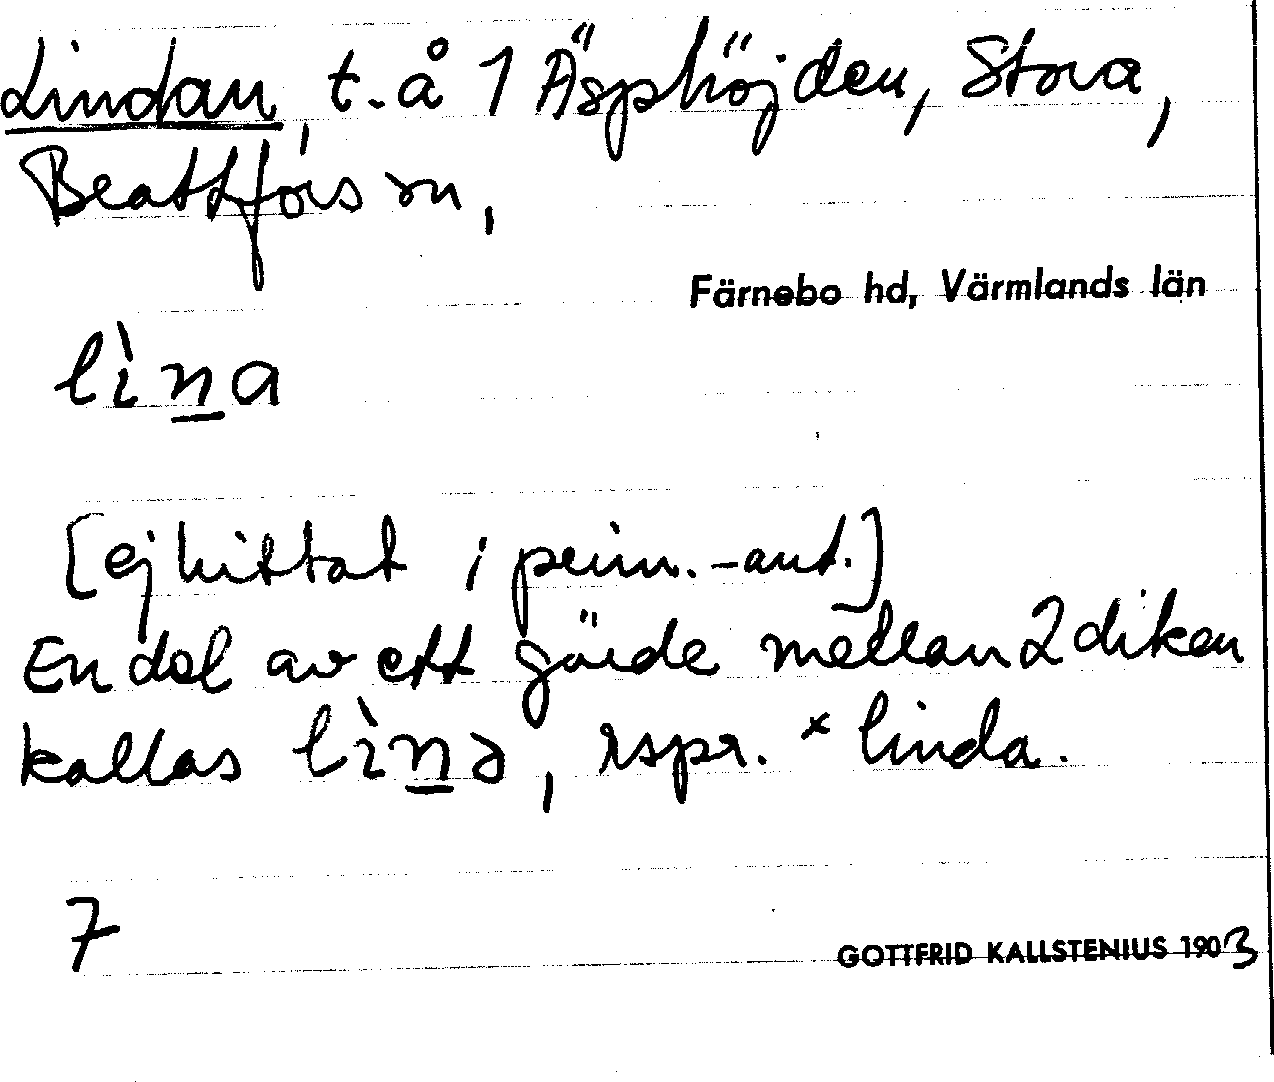 Lindan, t. å 1 Äsphöjden, Stora,
Beattfors sn,
Färnebo hd, Värmlands län
lìn̲a
[ej hittat i prim.-ant.]
En del av ett gärde mellan 2 diken
kallas lìn̲ə, rspr. × linda.
7
GOTTFRID KALLSTENIUS 1903